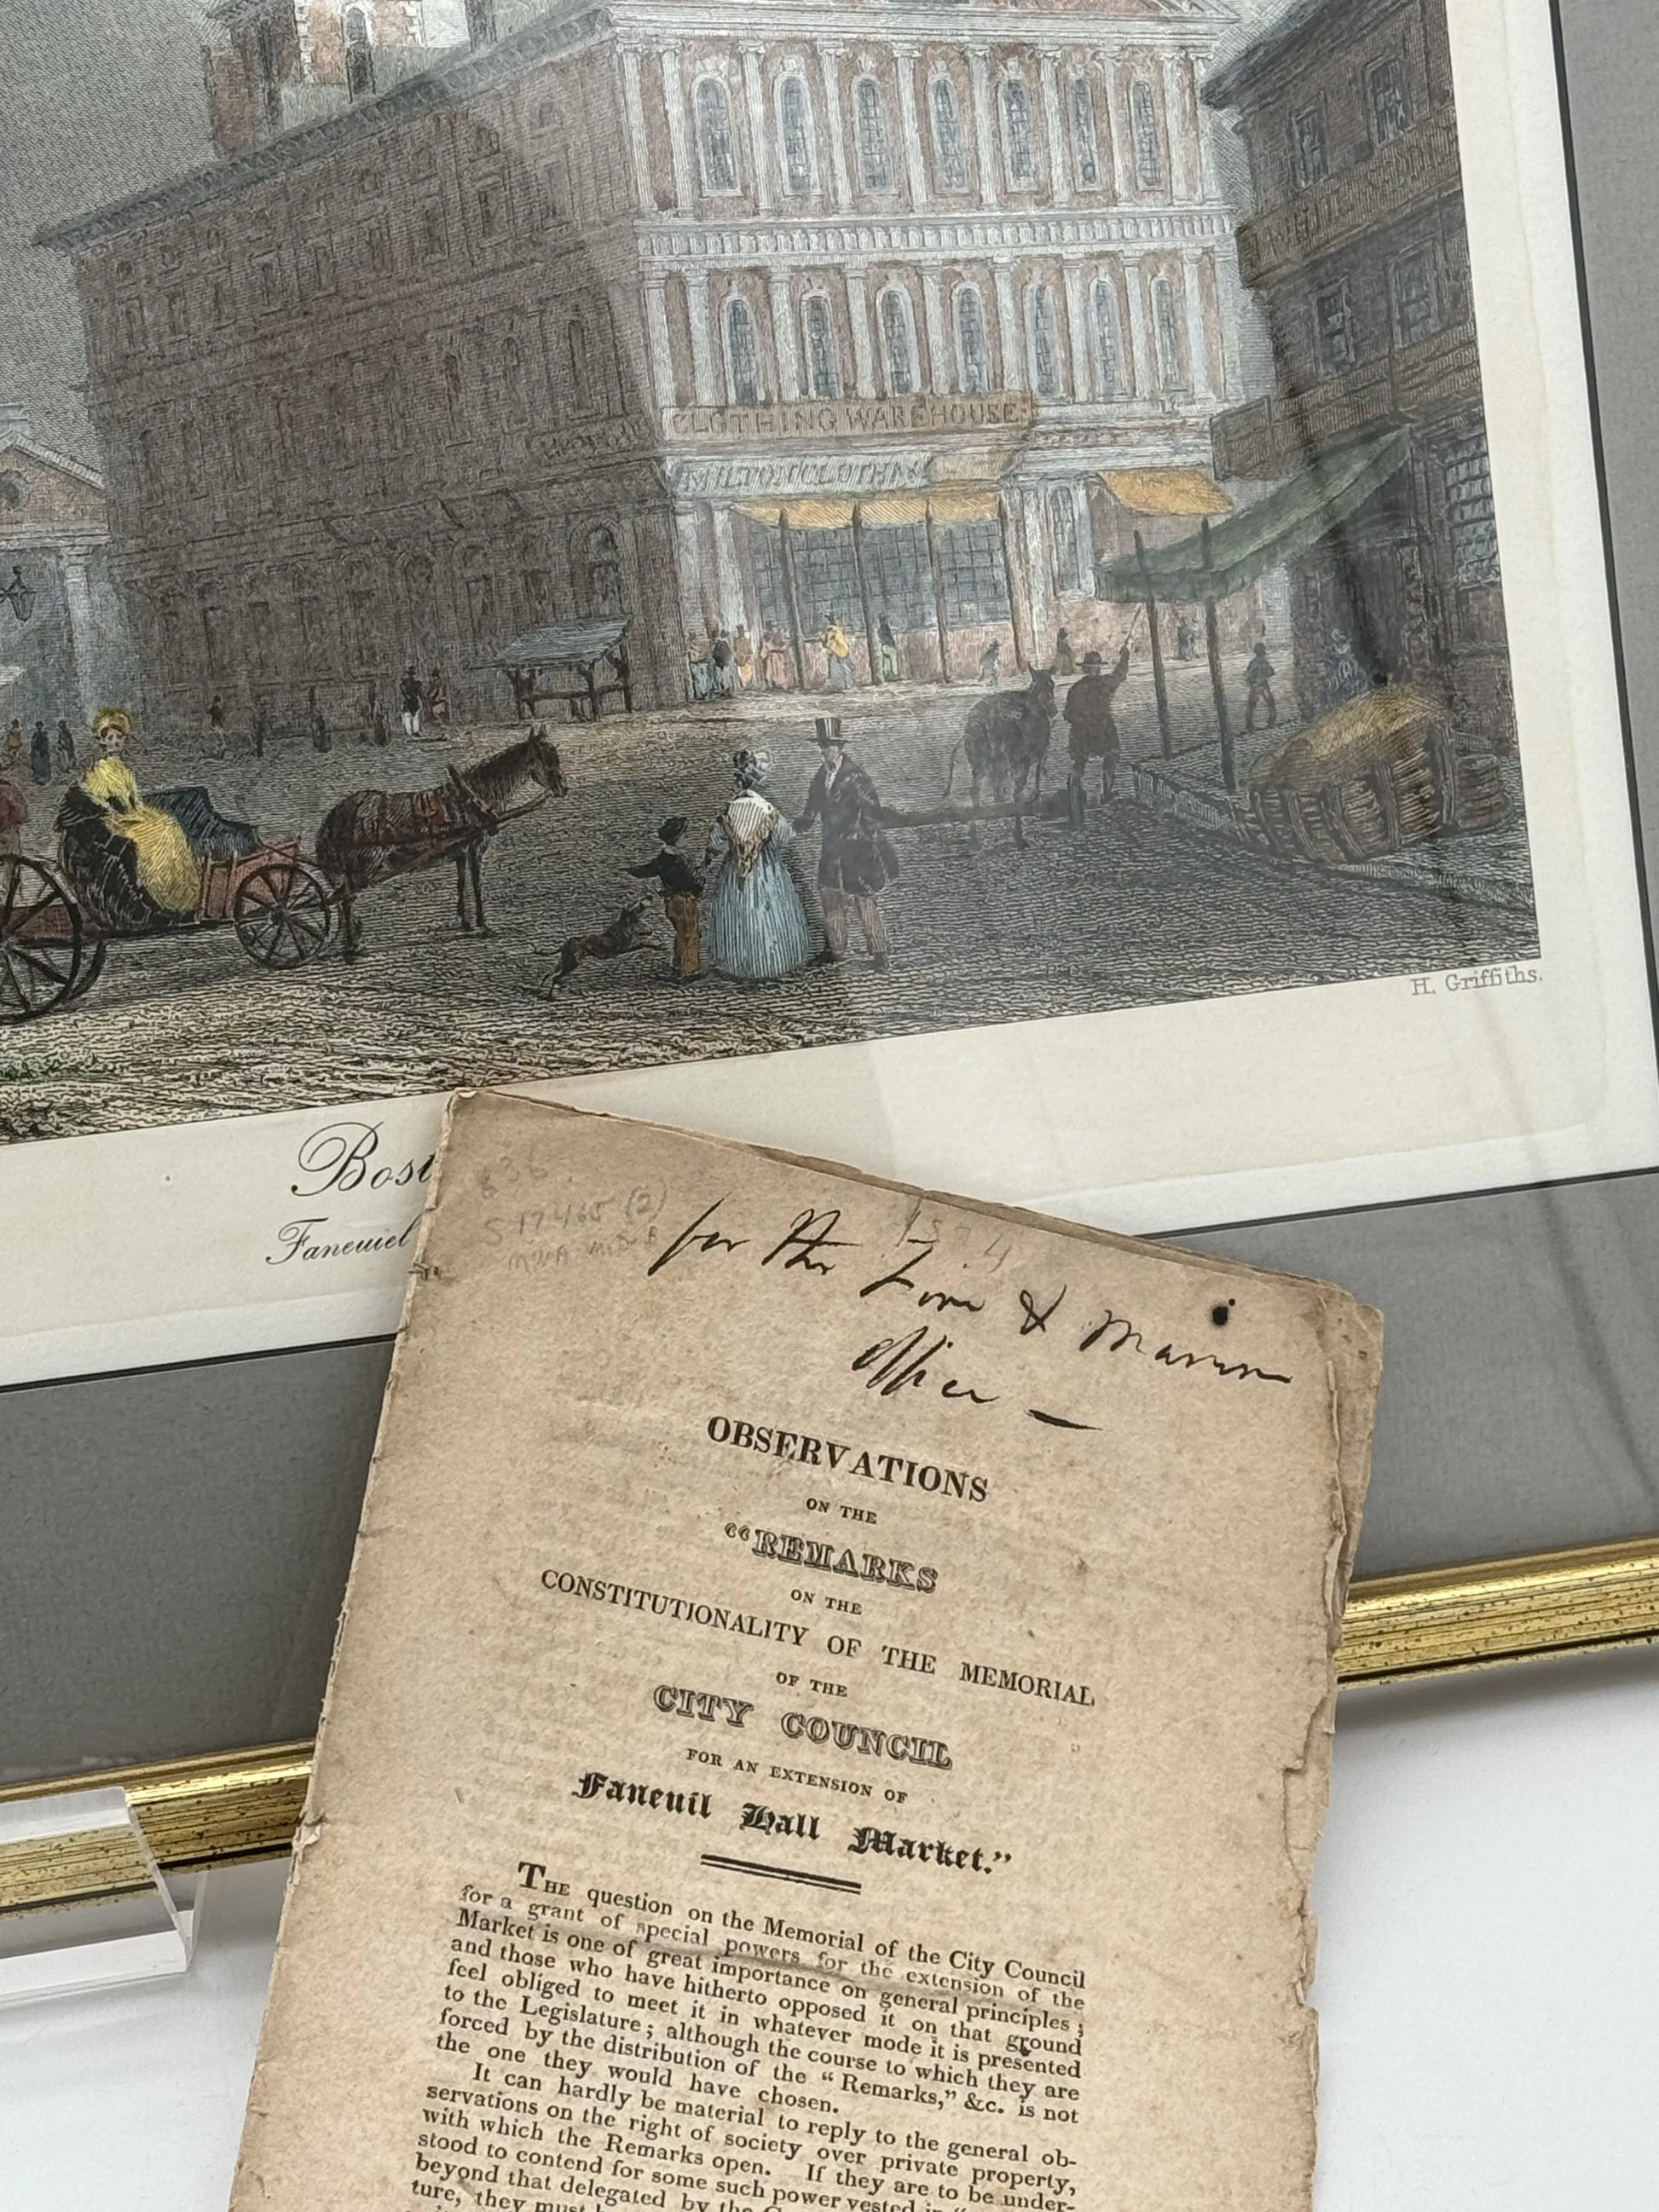 CLOTHING WAREHOUSE
MILTON CLOTHIN
H. Griffiths.
Bost
Faneuiel
836
S 17465 (2)
MWA
for the Fire & Marine
Office —
OBSERVATIONS
ON THE
“REMARKS
ON THE
CONSTITUTIONALITY OF THE MEMORIAL
OF THE
CITY COUNCIL
FOR AN EXTENSION OF
Faneuil Hall Market.”
THE question on the Memorial of the City Council
for a grant of special powers for the extension of the
Market is one of great importance on general principles ;
and those who have hitherto opposed it on that ground
feel obliged to meet it in whatever mode it is presented
to the Legislature ; although the course to which they are
forced by the distribution of the “ Remarks,” &c. is not
the one they would have chosen.
It can hardly be material to reply to the general ob-
servations on the right of society over private property,
with which the Remarks open. If they are to be under-
stood to contend for some such power vested in
beyond that delegated by the
ture, they must